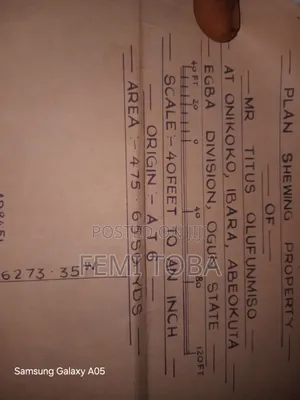 PLAN SHEWING PROPERTY
OF
MR TITUS OLUFUNMISO
AT ONIKOKO, IBARA, ABEOKUTA
EGBA DIVISION, OGUN STATE
40 FT 20 0 40 80 120 FT
SCALE :- 40 FEET TO AN INCH
ORIGIN :- A T 6
AREA :- 475.65 SQ YDS
6273.35
POSTED ON
FEMI TOBA
Samsung Galaxy A05